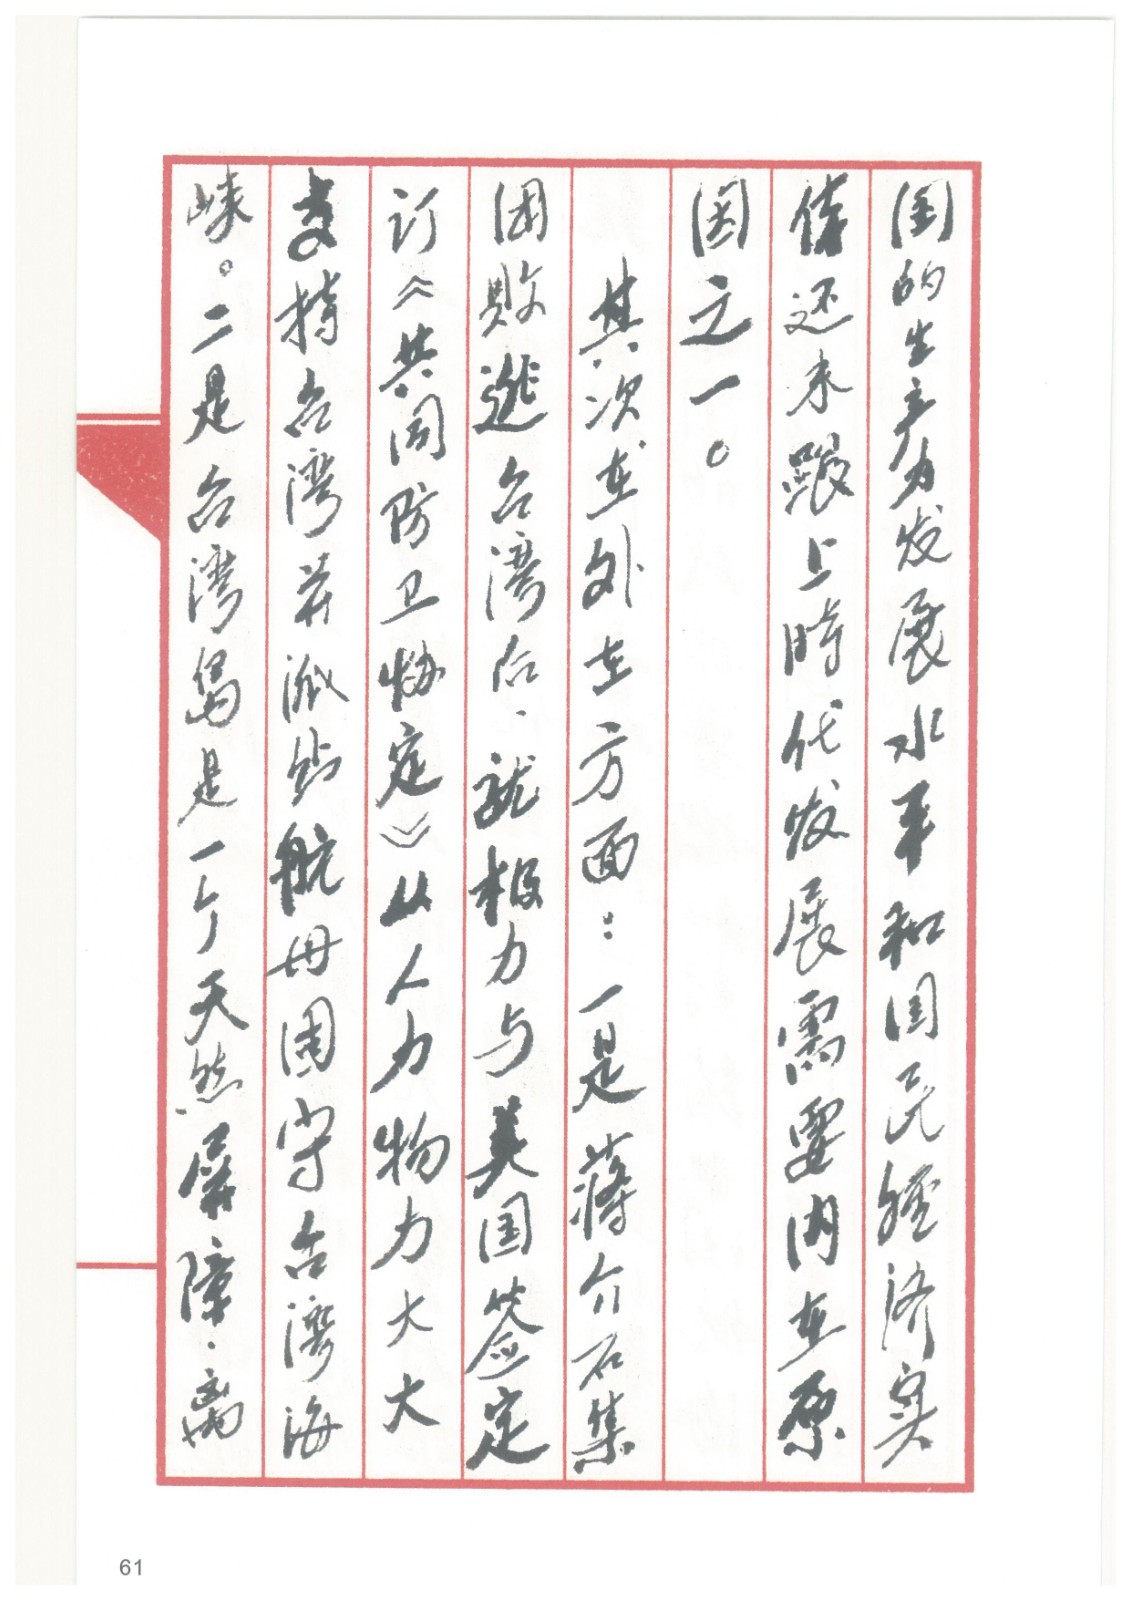 国的生产力发展水平和国民经济实
情还未跟上時代发展需要内在原
因之一。
其次在外在方面：一是蒋介石集
团败逃台湾后、就极力与美国签定
订《共同防卫协定》从人力物力大大
支持台湾并派出航母固守台湾海
峡。二是台湾岛是一个天然屏障、离
61